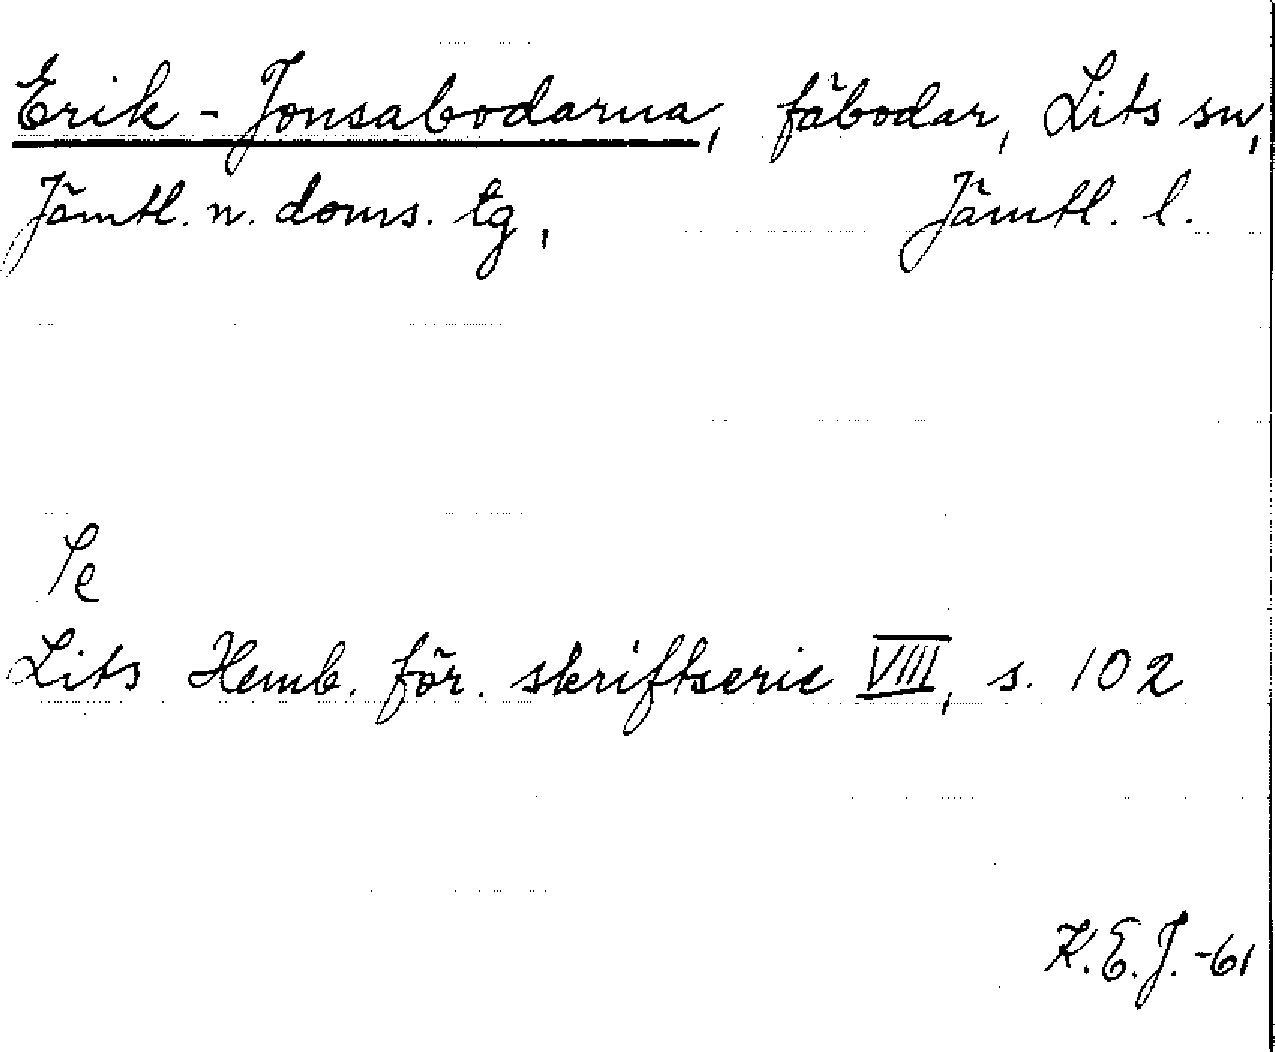 Erik-Jonsabodarna, fäbodar, Lits sn,
Jämtl. n. doms. tg, Jämtl. l.
Se
Lits Hemb. för. skriftserie VIII, s. 102
K.E.J. -61